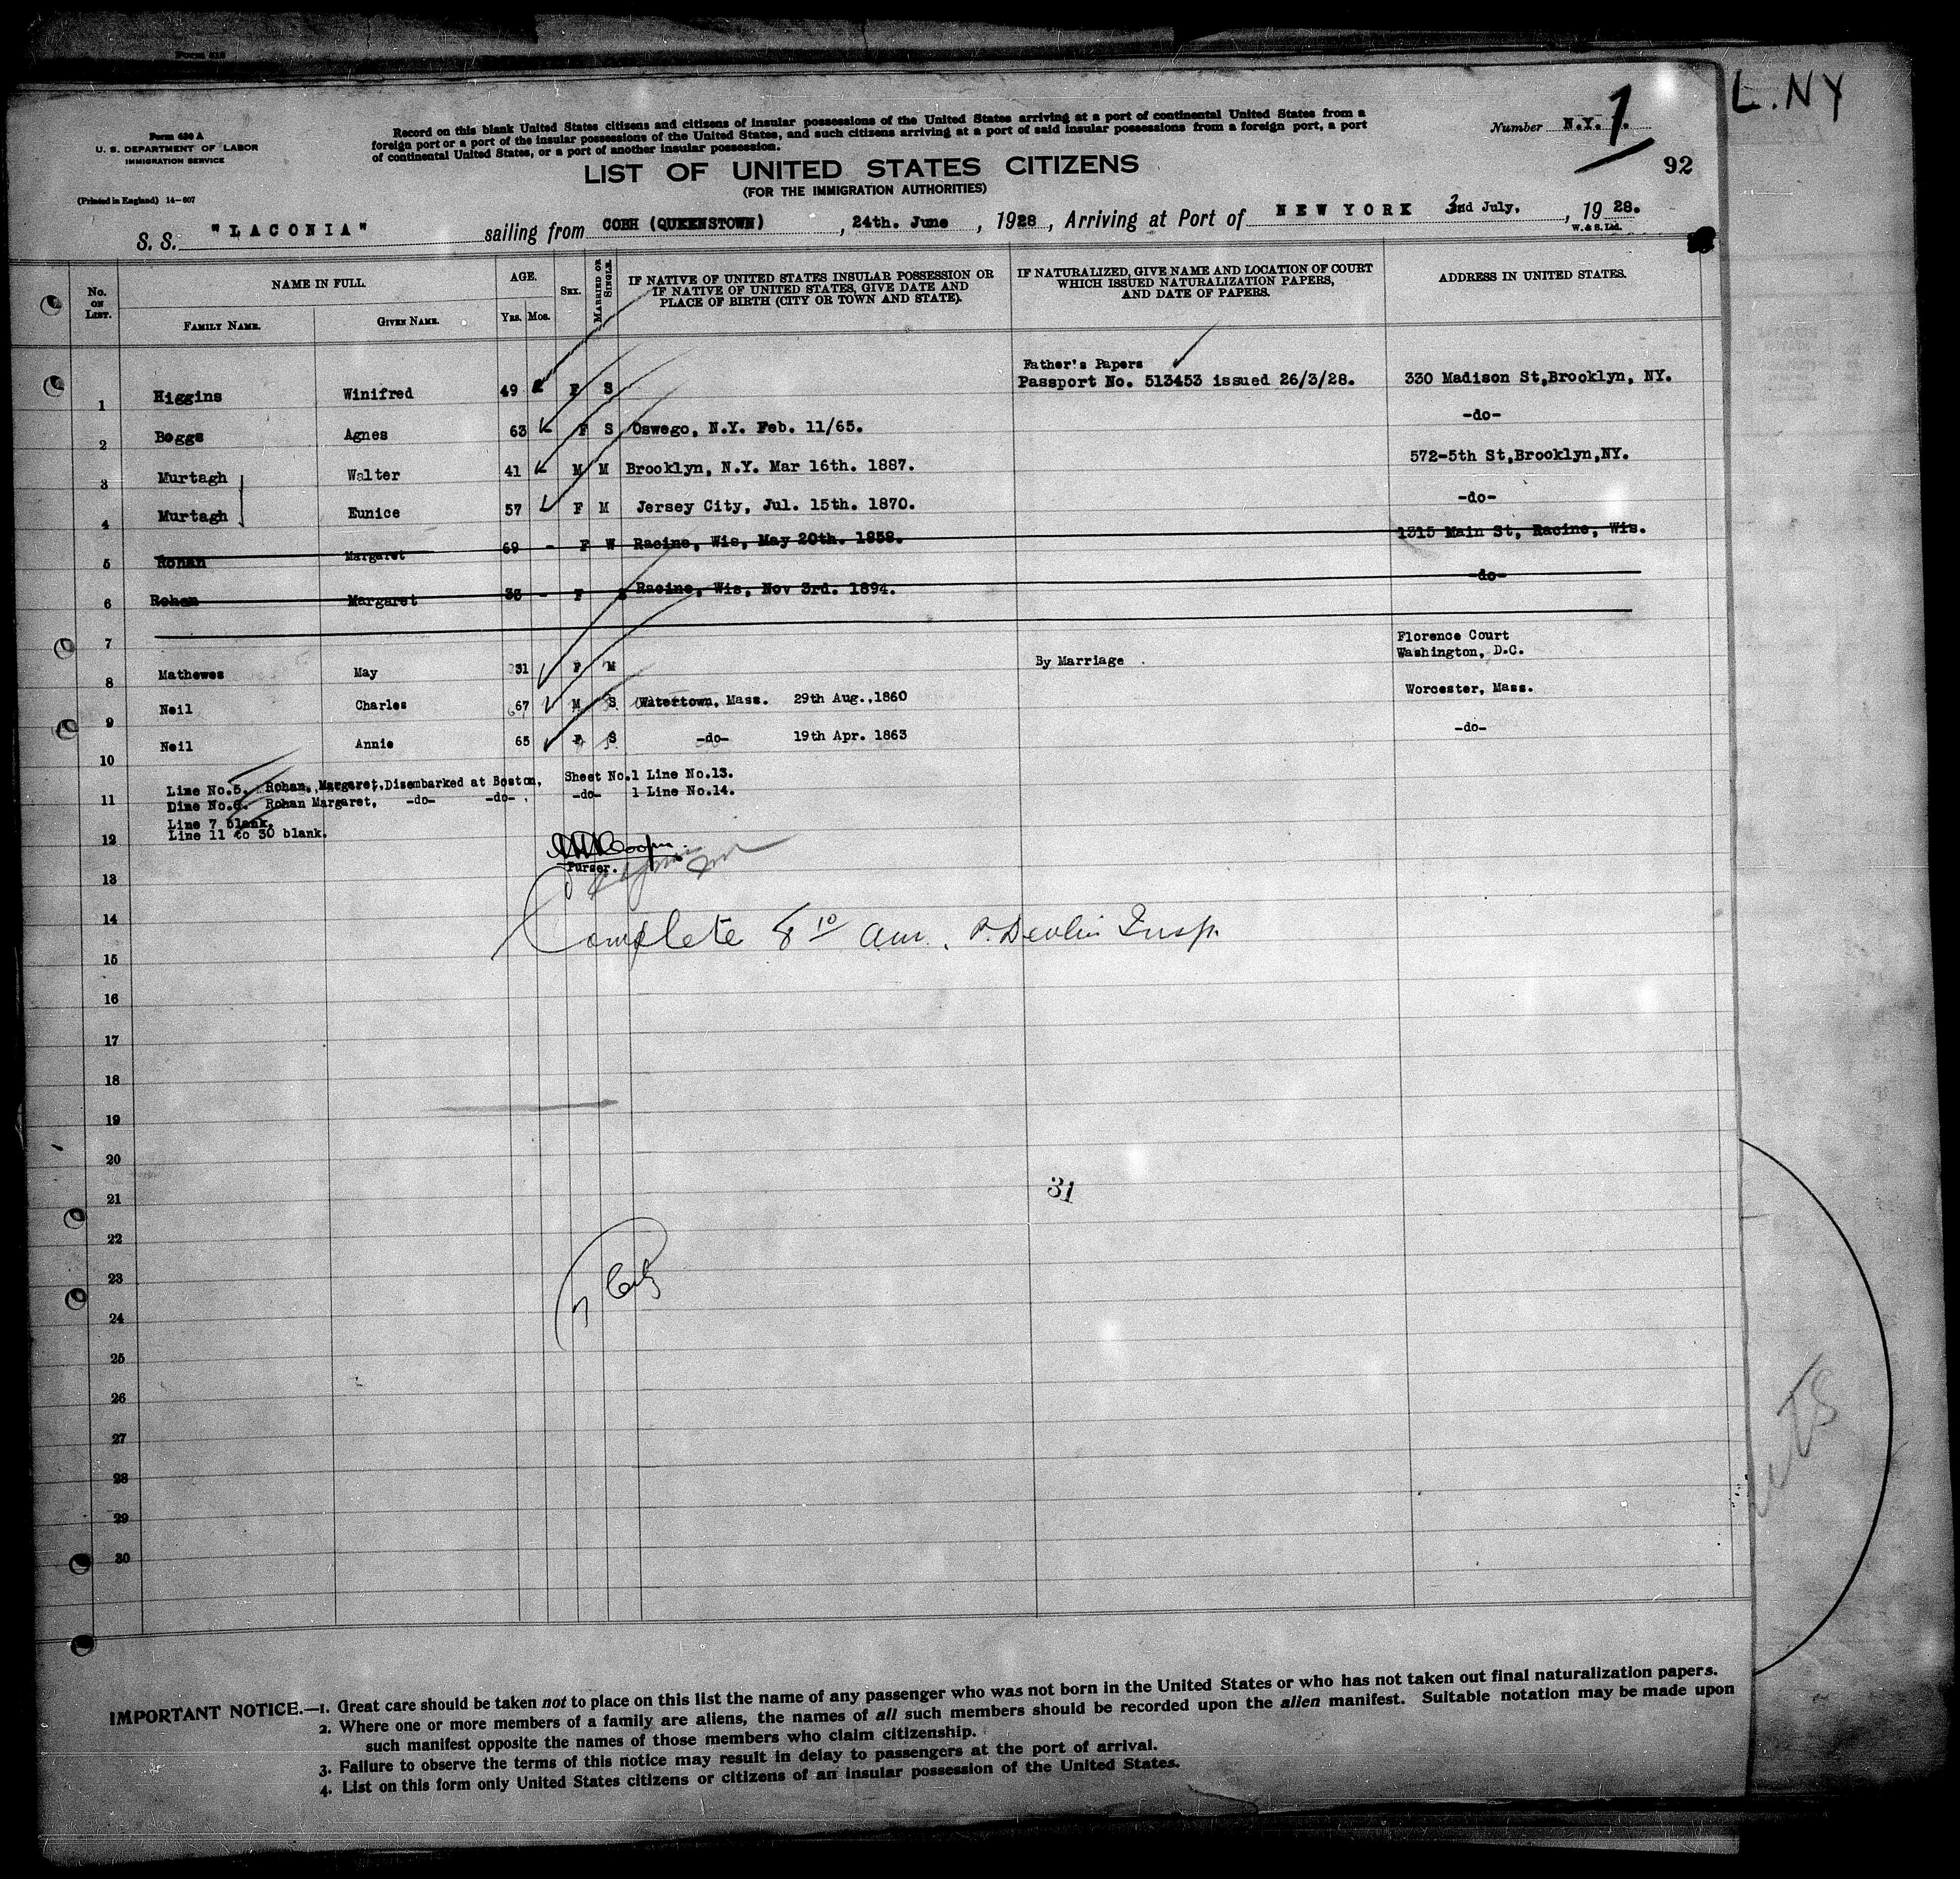 Form 630 A
U. S. DEPARTMENT OF LABOR
IMMIGRATION SERVICE
(Printed in England) 14-607
Record on this blank United States citizens and citizens of insular possessions of the United States arriving at a port of continental United States from a
foreign port or a port of the insular possessions of the United States, and such citizens arriving at a port of said insular possessions from a foreign port, a port
of continental United States, or a port of another insular possession.
L. NY
Number N.Y. 1
92
LIST OF UNITED STATES CITIZENS
(FOR THE IMMIGRATION AUTHORITIES)
S. S. "LACONIA" sailing from COBH (QUEENSTOWN), 24th. June, 1928, Arriving at Port of NEW YORK 3nd July, 1928.
W. & S. Ltd.
No. ON LIST. NAME IN FULL. FAMILY NAME. GIVEN NAME. AGE. Yrs. Mos. SEX. MARRIED OR SINGLE. IF NATIVE OF UNITED STATES INSULAR POSSESSION OR IF NATIVE OF UNITED STATES, GIVE DATE AND PLACE OF BIRTH (CITY OR TOWN AND STATE). IF NATURALIZED, GIVE NAME AND LOCATION OF COURT WHICH ISSUED NATURALIZATION PAPERS, AND DATE OF PAPERS. ADDRESS IN UNITED STATES.
Father's Papers
1 Higgins Winifred 49 F S Passport No. 513453 issued 26/3/28. 330 Madison St,Brooklyn, NY.
2 Boggs Agnes 63 F S Oswego, N.Y. Feb. 11/65. -do-
3 Murtagh Walter 41 M M Brooklyn, N.Y. Mar 16th. 1887. 572-5th St,Brooklyn,NY.
4 Murtagh Eunice 57 F M Jersey City, Jul. 15th. 1870. -do-
5 Rohan Margaret 69 - F W Racine, Wis, May 20th. 1858. 1315 Main St, Racine, Wis.
6 Rohan Margaret 33 - F S Racine, Wis, Nov 3rd. 1894. -do-
7
8 Mathewes May 31 F M By Marriage Florence Court Washington, D.C.
9 Neil Charles 67 M S Watertown, Mass. 29th Aug.,1860 Worcester, Mass.
10 Neil Annie 65 F S -do- 19th Apr. 1863 -do-
Line No.5. Rohan, Margaret,Disembarked at Boston, Sheet No.1 Line No.13.
11 Dine No.6. Rohan Margaret, -do- -do- -do- 1 Line No.14.
Line 7 blank.
Line 11 to 30 blank.
12
Purser.
13
14
Complete 8 10 am. P. Devlin Insp.
15
16
17
18
19
20
21
31
22
23
24
25
26
27
28
29
30
IMPORTANT NOTICE.—1. Great care should be taken not to place on this list the name of any passenger who was not born in the United States or who has not taken out final naturalization papers.
2. Where one or more members of a family are aliens, the names of all such members should be recorded upon the alien manifest. Suitable notation may be made upon
such manifest opposite the names of those members who claim citizenship.
3. Failure to observe the terms of this notice may result in delay to passengers at the port of arrival.
4. List on this form only United States citizens or citizens of an insular possession of the United States.